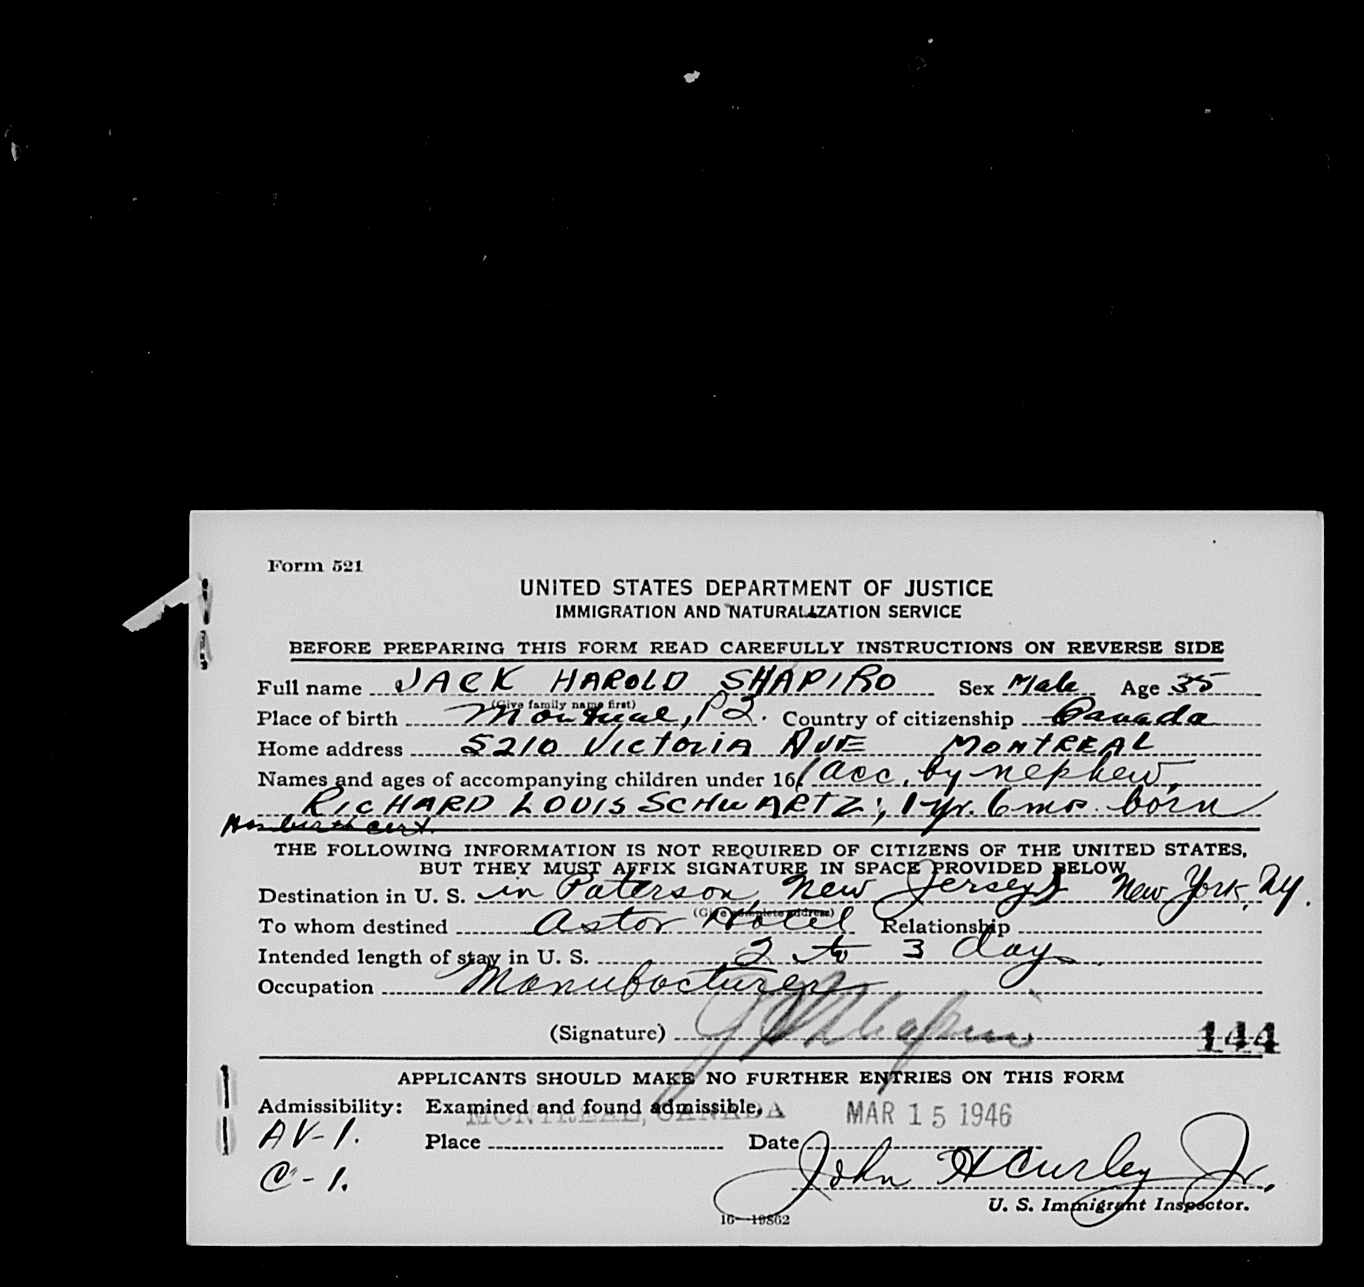 Form 521
UNITED STATES DEPARTMENT OF JUSTICE
IMMIGRATION AND NATURALIZATION SERVICE
BEFORE PREPARING THIS FORM READ CAREFULLY INSTRUCTIONS ON REVERSE SIDE
Full name JACK HAROLD SHAPIRO Sex Male Age 35
(Give family name first)
Place of birth Montreal, P2. Country of citizenship Canada
Home address 5210 Victoria AVE MONTREAL
Names and ages of accompanying children under 16: (acc. by nephew,
RICHARD LOUIS SCHWARTZ; 1 yr. 6 mos. born
Has birth cert.
THE FOLLOWING INFORMATION IS NOT REQUIRED OF CITIZENS OF THE UNITED STATES,
BUT THEY MUST AFFIX SIGNATURE IN SPACE PROVIDED BELOW
Destination in U. S. in Paterson, New Jersey) New York, NY.
(Give complete address)
To whom destined Astor Hotel Relationship
Intended length of stay in U. S. 2 to 3 days.
Occupation Manufacturer
(Signature) J H Shapiro
144
APPLICANTS SHOULD MAKE NO FURTHER ENTRIES ON THIS FORM
Admissibility: Examined and found admissible,
MONTREAL, CANADA MAR 15 1946
AV-1. Place Date
C-1. John H Curley Jr.
U. S. Immigrant Inspector.
16—19862